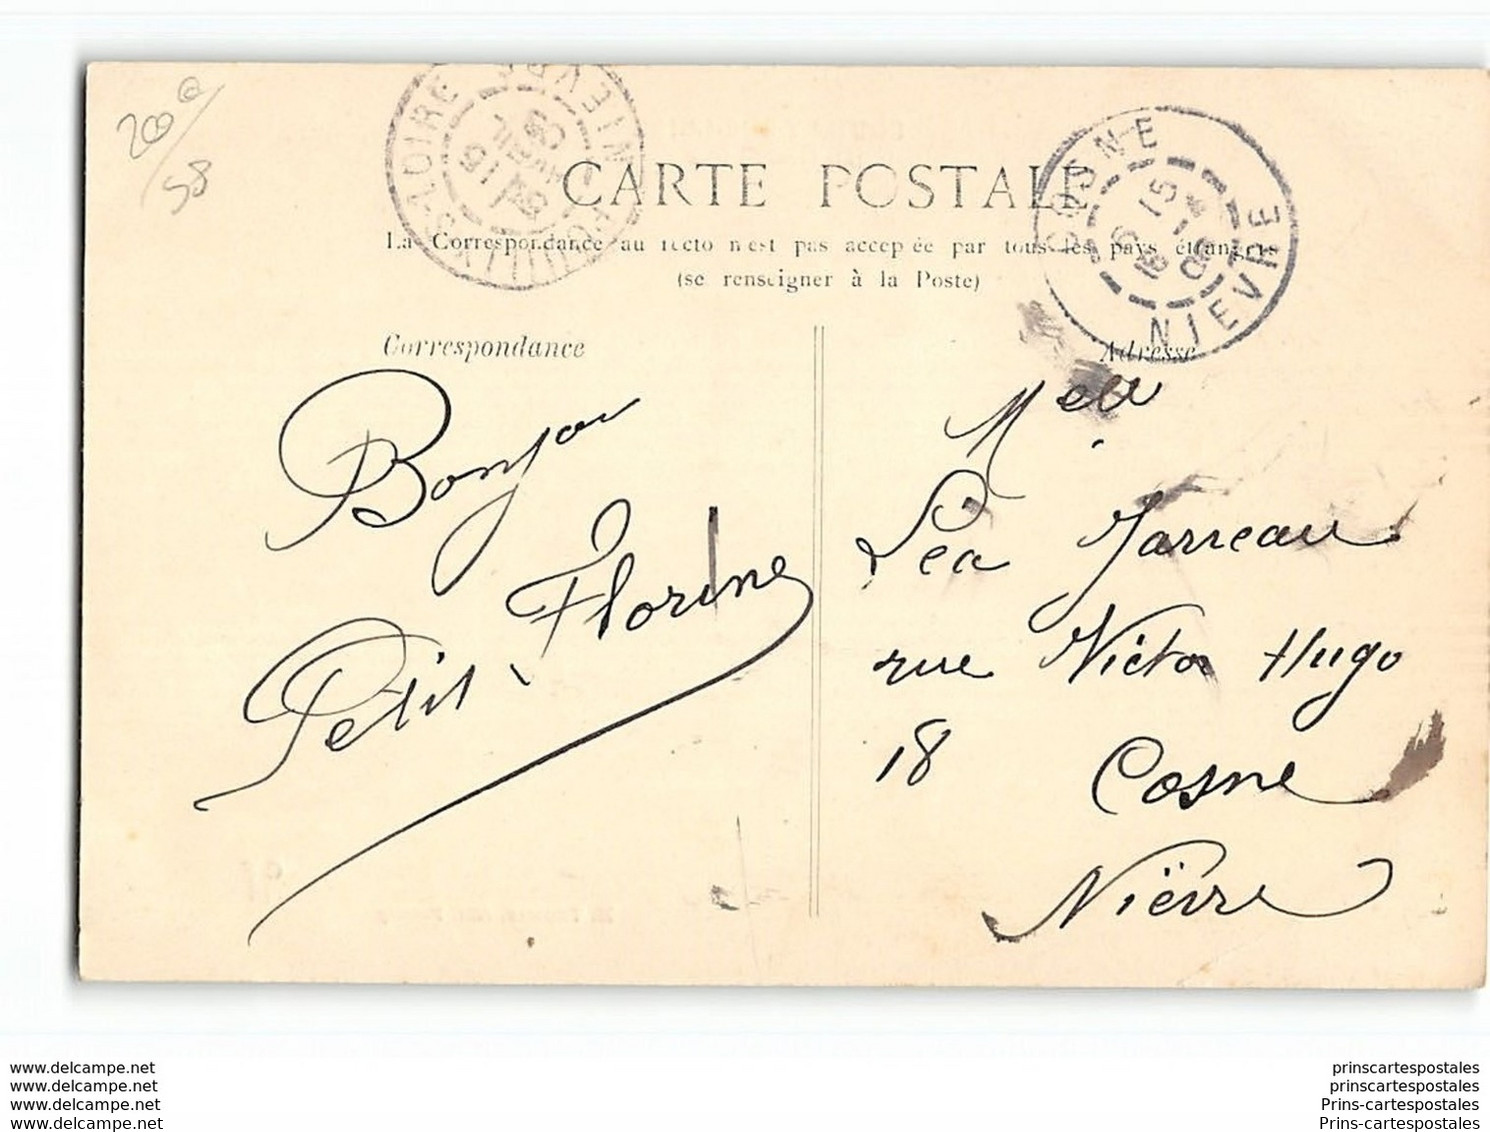 200
58
CARTE POSTALE
La Correspondance au recto n'est pas acceptée par tous les pays étrangers
(se renseigner à la Poste)
COSNE
NIEVRE
Correspondance
Bonjou
Petit Florine
Adresse
Melle
Léa Jarreau
rue Victor Hugo
18 Cosne
Nièvre
www.delcampe.net
www.delcampe.net
www.delcampe.net
www.delcampe.net
prinscartespostales
prinscartespostales
Prins-cartespostales
Prins-cartespostales